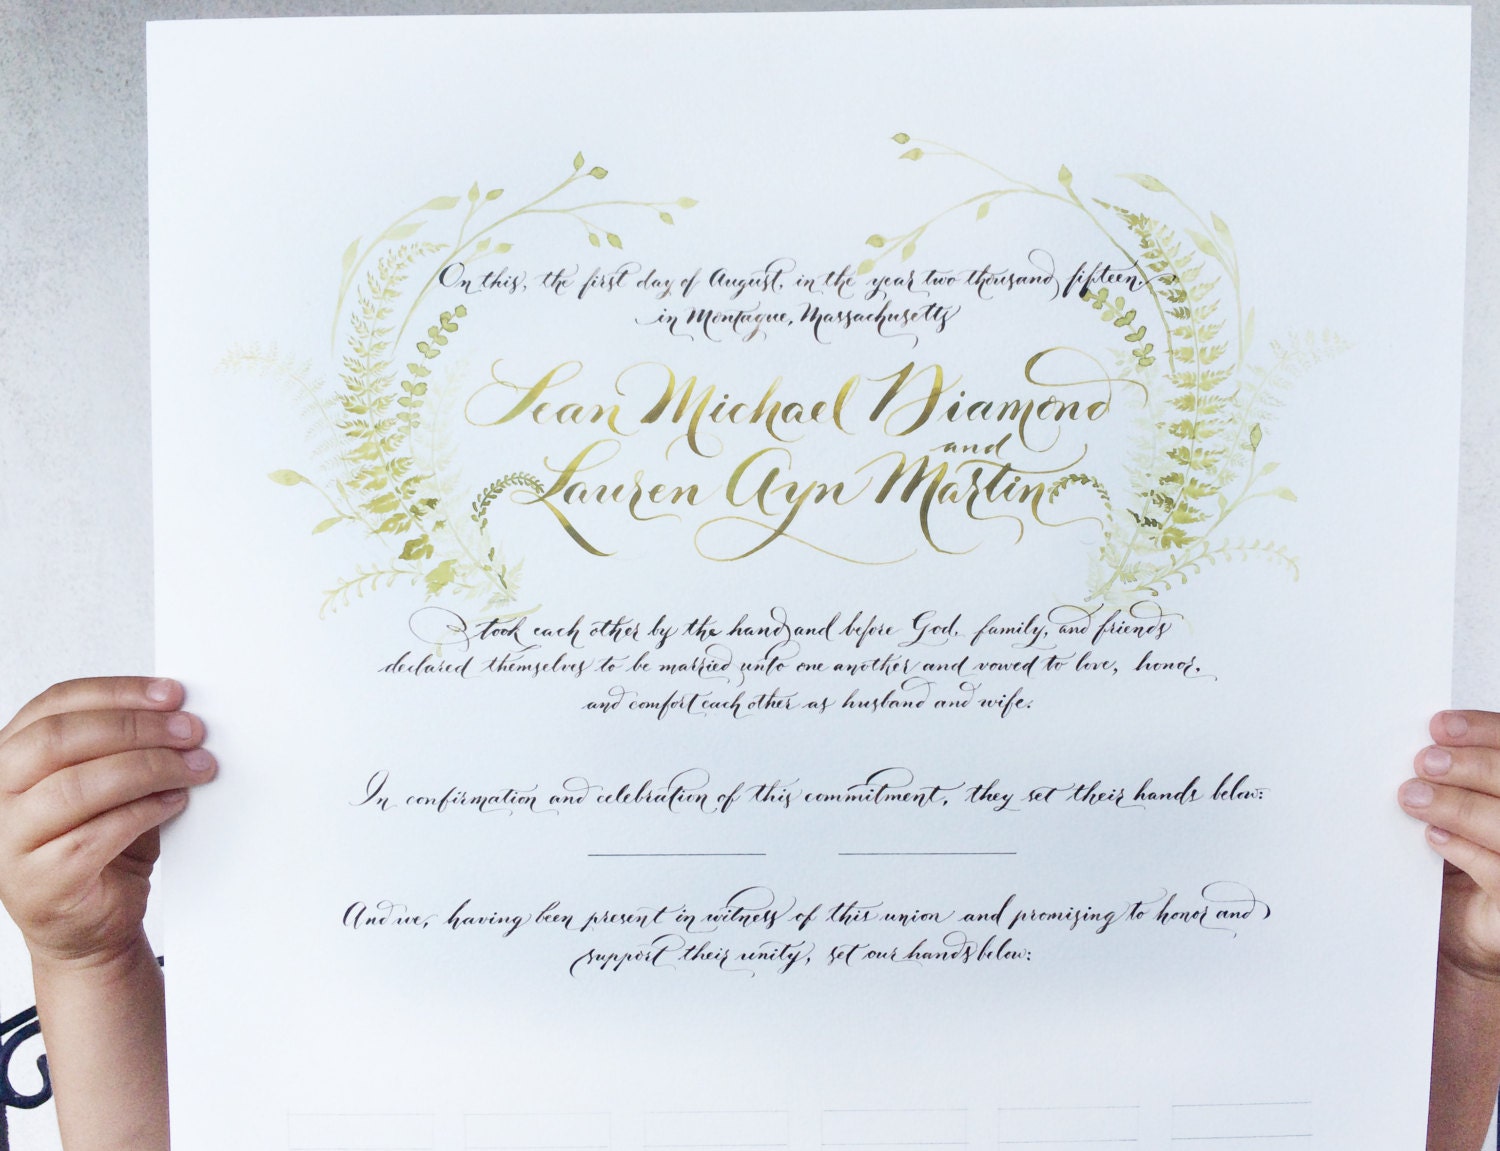 On this, the first day of August, in the year two thousand fifteen,
in Montague, Massachusetts
Sean Michael Diamond
and
Lauren Ayn Martin
took each other by the hand and before God, family, and friends
declared themselves to be married unto one another and vowed to love, honor,
and comfort each other as husband and wife.
In confirmation and celebration of this commitment, they set their hands below:
And we, having been present in witness of this union and promising to honor and
support their unity, set our hands below: